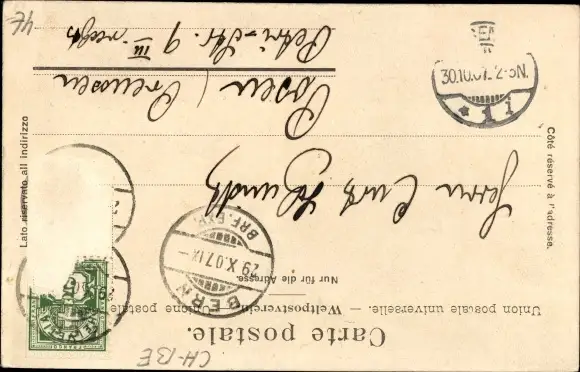 Carte postale.
Union postale universelle. — Weltpostverein. — Unione postale
Nur für die Adresse.
Côté réservé à l'adresse.
Lato riservato all indirizzo
BERN
29.X.07.IX
BRF. EXP.
Herrn Curt
Posen (Preussen
Petri-Str. 9 III rechts
30.10.07. 2-3N.
* 1 i
CH-BE